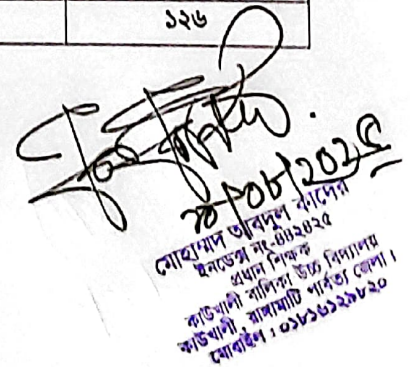 ১২৬
২০/০৮/২০২৫
মোহাম্মদ আবদুল কাদের
ইনডেক্স নং-৪৪২৪২৫
প্রধান শিক্ষক
কাউখালী বালিকা উচ্চ বিদ্যালয়
কাউখালী, রাঙ্গামাটি পার্বত্য জেলা।
মোবাইল : ০১৮১৬১২৯৮২০